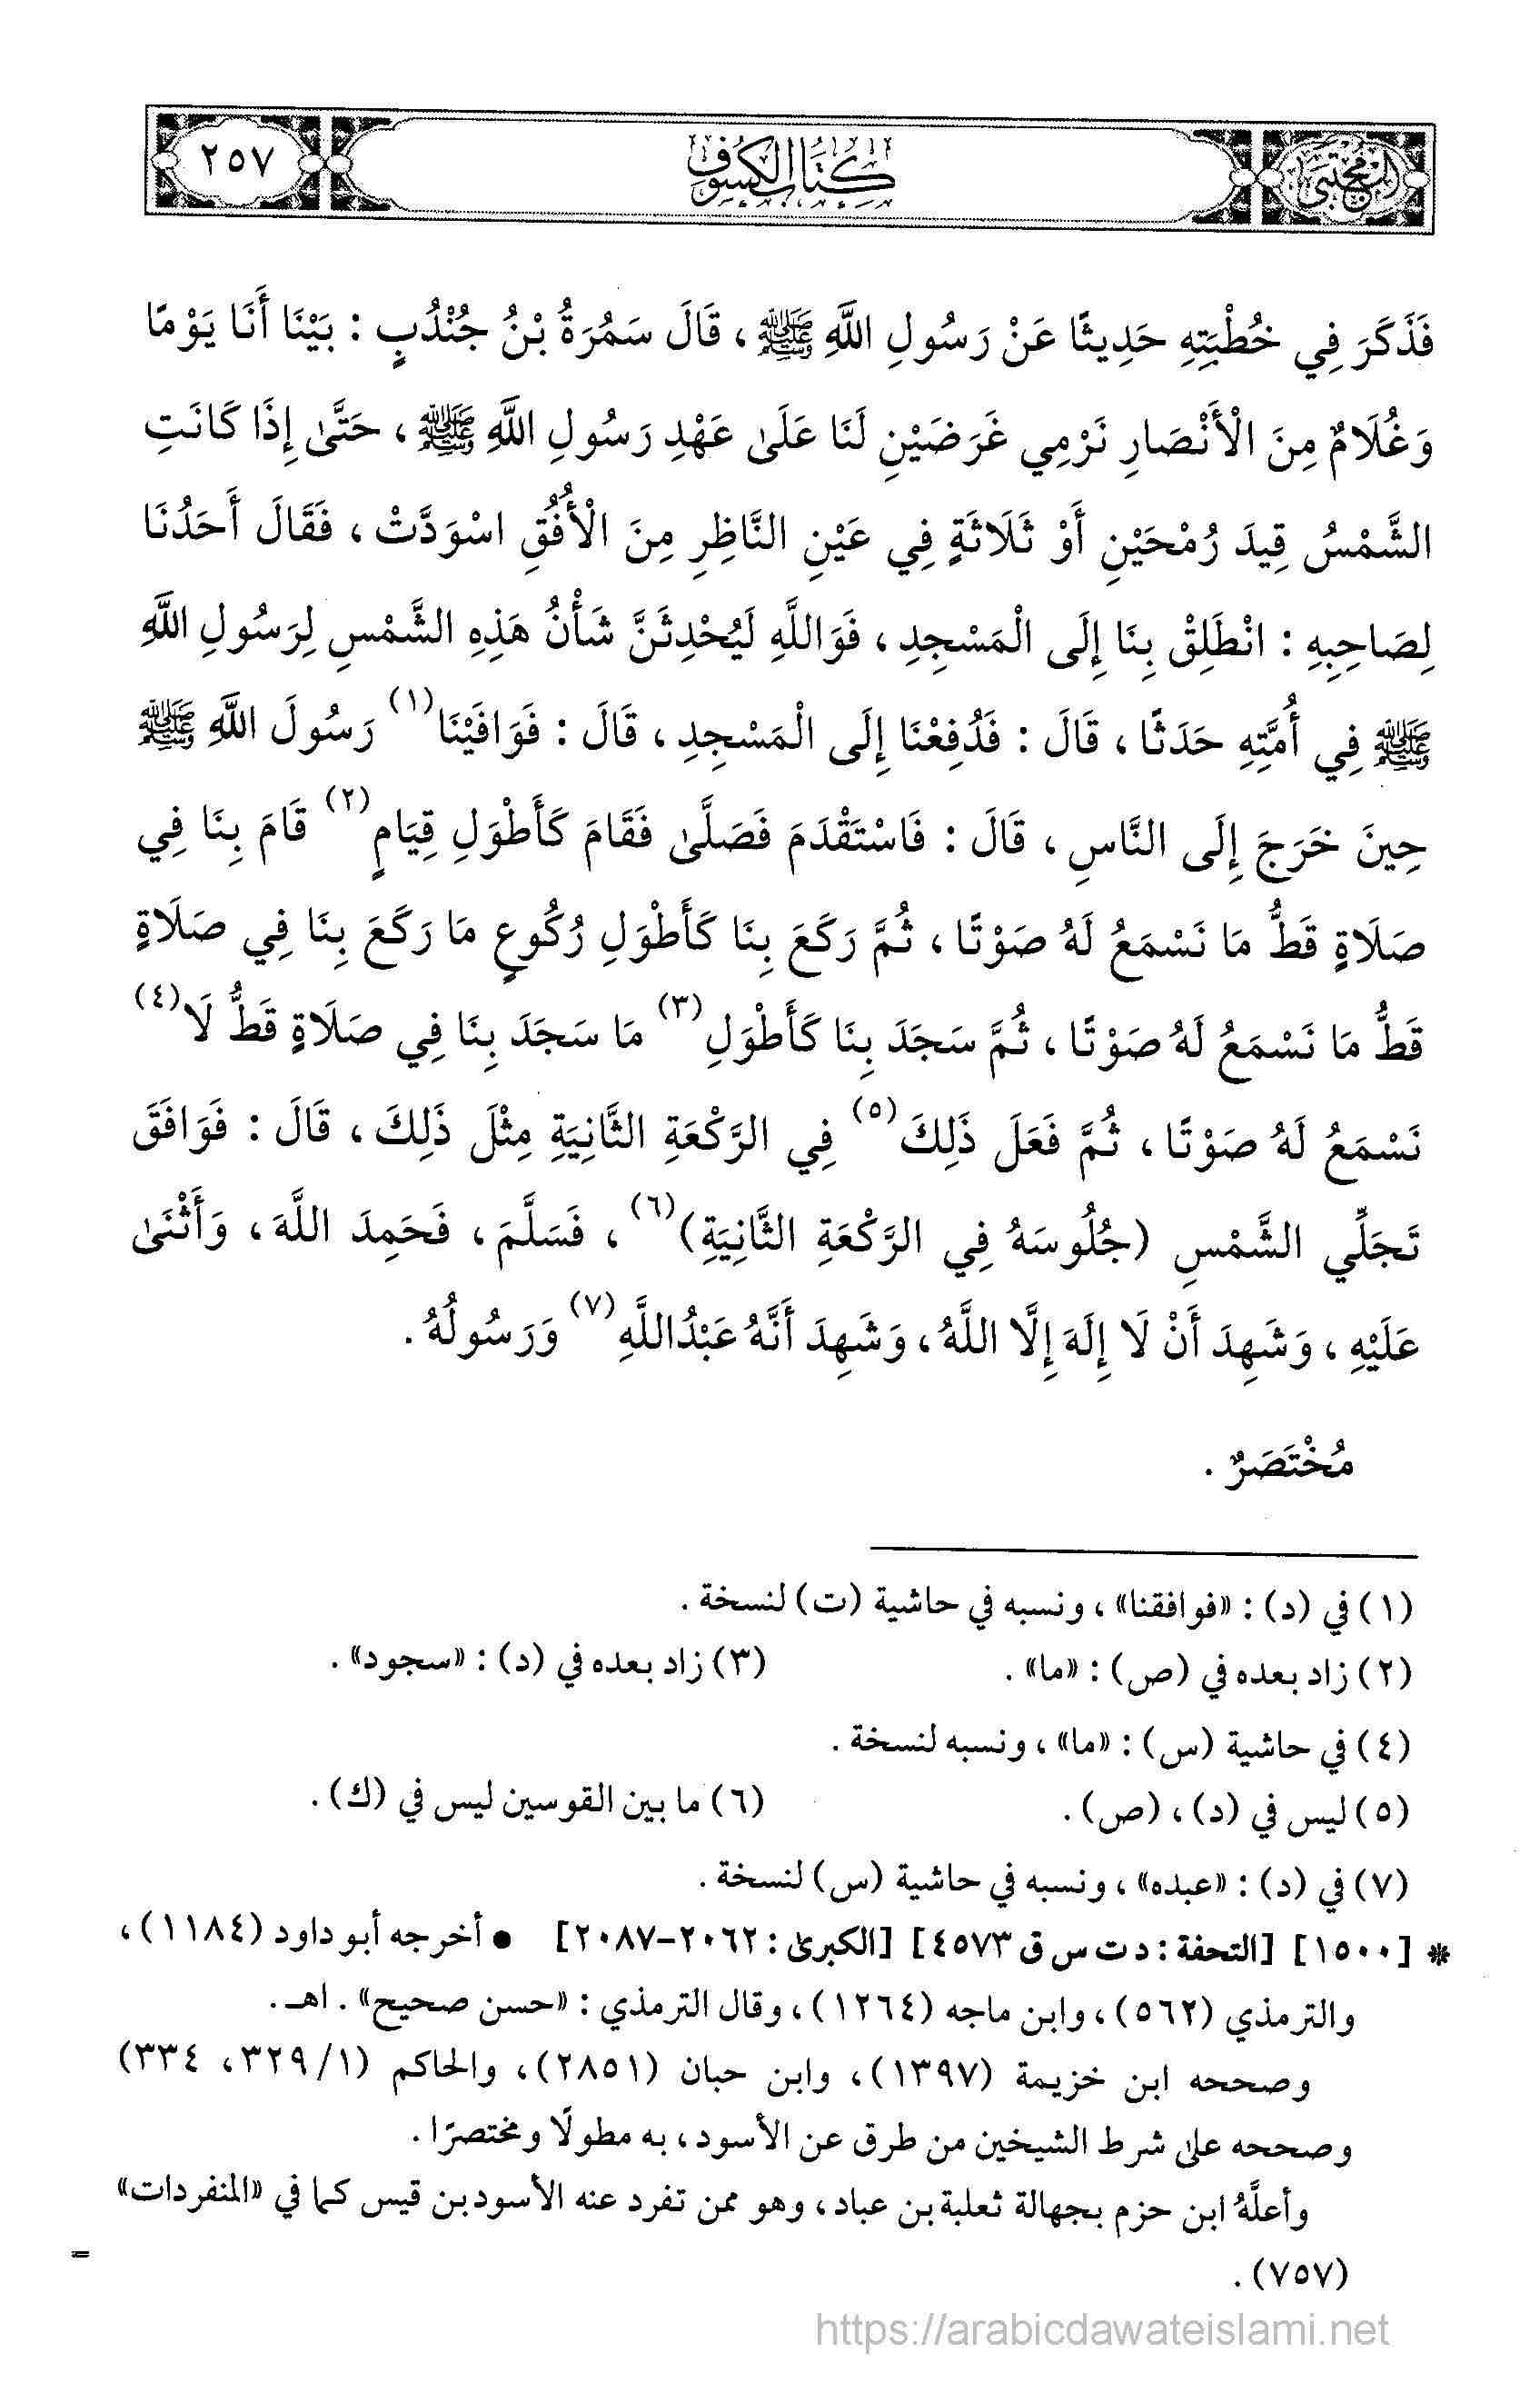 المجتبى
كتاب الكسوف
٢٥٧
فَذَكَرَ فِي خُطْبَتِهِ حَدِيثًا عَنْ رَسُولِ اللَّهِ ﷺ ، قَالَ سَمُرَةُ بْنُ جُنْدُبٍ : بَيْنَا أَنَا يَوْمًا
وَغُلَامٌ مِنَ الْأَنْصَارِ نَرْمِي غَرَضَيْنِ لَنَا عَلَىٰ عَهْدِ رَسُولِ اللَّهِ ﷺ ، حَتَّىٰ إِذَا كَانَتِ
الشَّمْسُ قِيدَ رُمْحَيْنِ أَوْ ثَلَاثَةٍ فِي عَيْنِ النَّاظِرِ مِنَ الْأُفُقِ اسْوَدَّتْ ، فَقَالَ أَحَدُنَا
لِصَاحِبِهِ : انْطَلِقْ بِنَا إِلَى الْمَسْجِدِ ، فَوَاللَّهِ لَيُحْدِثَنَّ شَأْنُ هَذِهِ الشَّمْسِ لِرَسُولِ اللَّهِ
ﷺ فِي أُمَّتِهِ حَدَثًا ، قَالَ : فَدُفِعْنَا إِلَى الْمَسْجِدِ ، قَالَ : فَوَافَيْنَا(١) رَسُولَ اللَّهِ ﷺ
حِينَ خَرَجَ إِلَى النَّاسِ ، قَالَ : فَاسْتَقْدَمَ فَصَلَّىٰ فَقَامَ كَأَطْوَلِ قِيَامٍ(٢) قَامَ بِنَا فِي
صَلَاةٍ قَطُّ مَا نَسْمَعُ لَهُ صَوْتًا ، ثُمَّ رَكَعَ بِنَا كَأَطْوَلِ رُكُوعٍ مَا رَكَعَ بِنَا فِي صَلَاةٍ
قَطُّ مَا نَسْمَعُ لَهُ صَوْتًا ، ثُمَّ سَجَدَ بِنَا كَأَطْوَلِ(٣) مَا سَجَدَ بِنَا فِي صَلَاةٍ قَطُّ لَا(٤)
نَسْمَعُ لَهُ صَوْتًا ، ثُمَّ فَعَلَ ذَلِكَ(٥) فِي الرَّكْعَةِ الثَّانِيَةِ مِثْلَ ذَلِكَ ، قَالَ : فَوَافَقَ
تَجَلِّي الشَّمْسِ (جُلُوسَهُ فِي الرَّكْعَةِ الثَّانِيَةِ)(٦) ، فَسَلَّمَ ، فَحَمِدَ اللَّهَ ، وَأَثْنَىٰ
عَلَيْهِ ، وَشَهِدَ أَنْ لَا إِلَهَ إِلَّا اللَّهُ ، وَشَهِدَ أَنَّهُ عَبْدُاللَّهِ(٧) وَرَسُولُهُ .
مُخْتَصَرٌ .
(١) في (د) : «فوافقنا» ، ونسبه في حاشية (ت) لنسخة .
(٢) زاد بعده في (ص) : «ما» . (٣) زاد بعده في (د) : «سجود» .
(٤) في حاشية (س) : «ما» ، ونسبه لنسخة .
(٥) ليس في (د) ، (ص) . (٦) ما بين القوسين ليس في (ك) .
(٧) في (د) : «عبده» ، ونسبه في حاشية (س) لنسخة .
* [١٥٠٠] [التحفة : د ت س ق ٤٥٧٣] [الكبرىٰ : ٢٠٦٢-٢٠٨٧] ● أخرجه أبو داود (١١٨٤) ،
والترمذي (٥٦٢) ، وابن ماجه (١٢٦٤) ، وقال الترمذي : «حسن صحيح» . اهـ .
وصححه ابن خزيمة (١٣٩٧) ، وابن حبان (٢٨٥١) ، والحاكم (٣٢٩/١ ، ٣٣٤)
وصححه علىٰ شرط الشيخين من طرق عن الأسود ، به مطولًا ومختصرًا .
وأعلَّهُ ابن حزم بجهالة ثعلبة بن عباد ، وهو ممن تفرد عنه الأسود بن قيس كما في «المنفردات»
(٧٥٧) .
=
https://arabicdawateislami.net